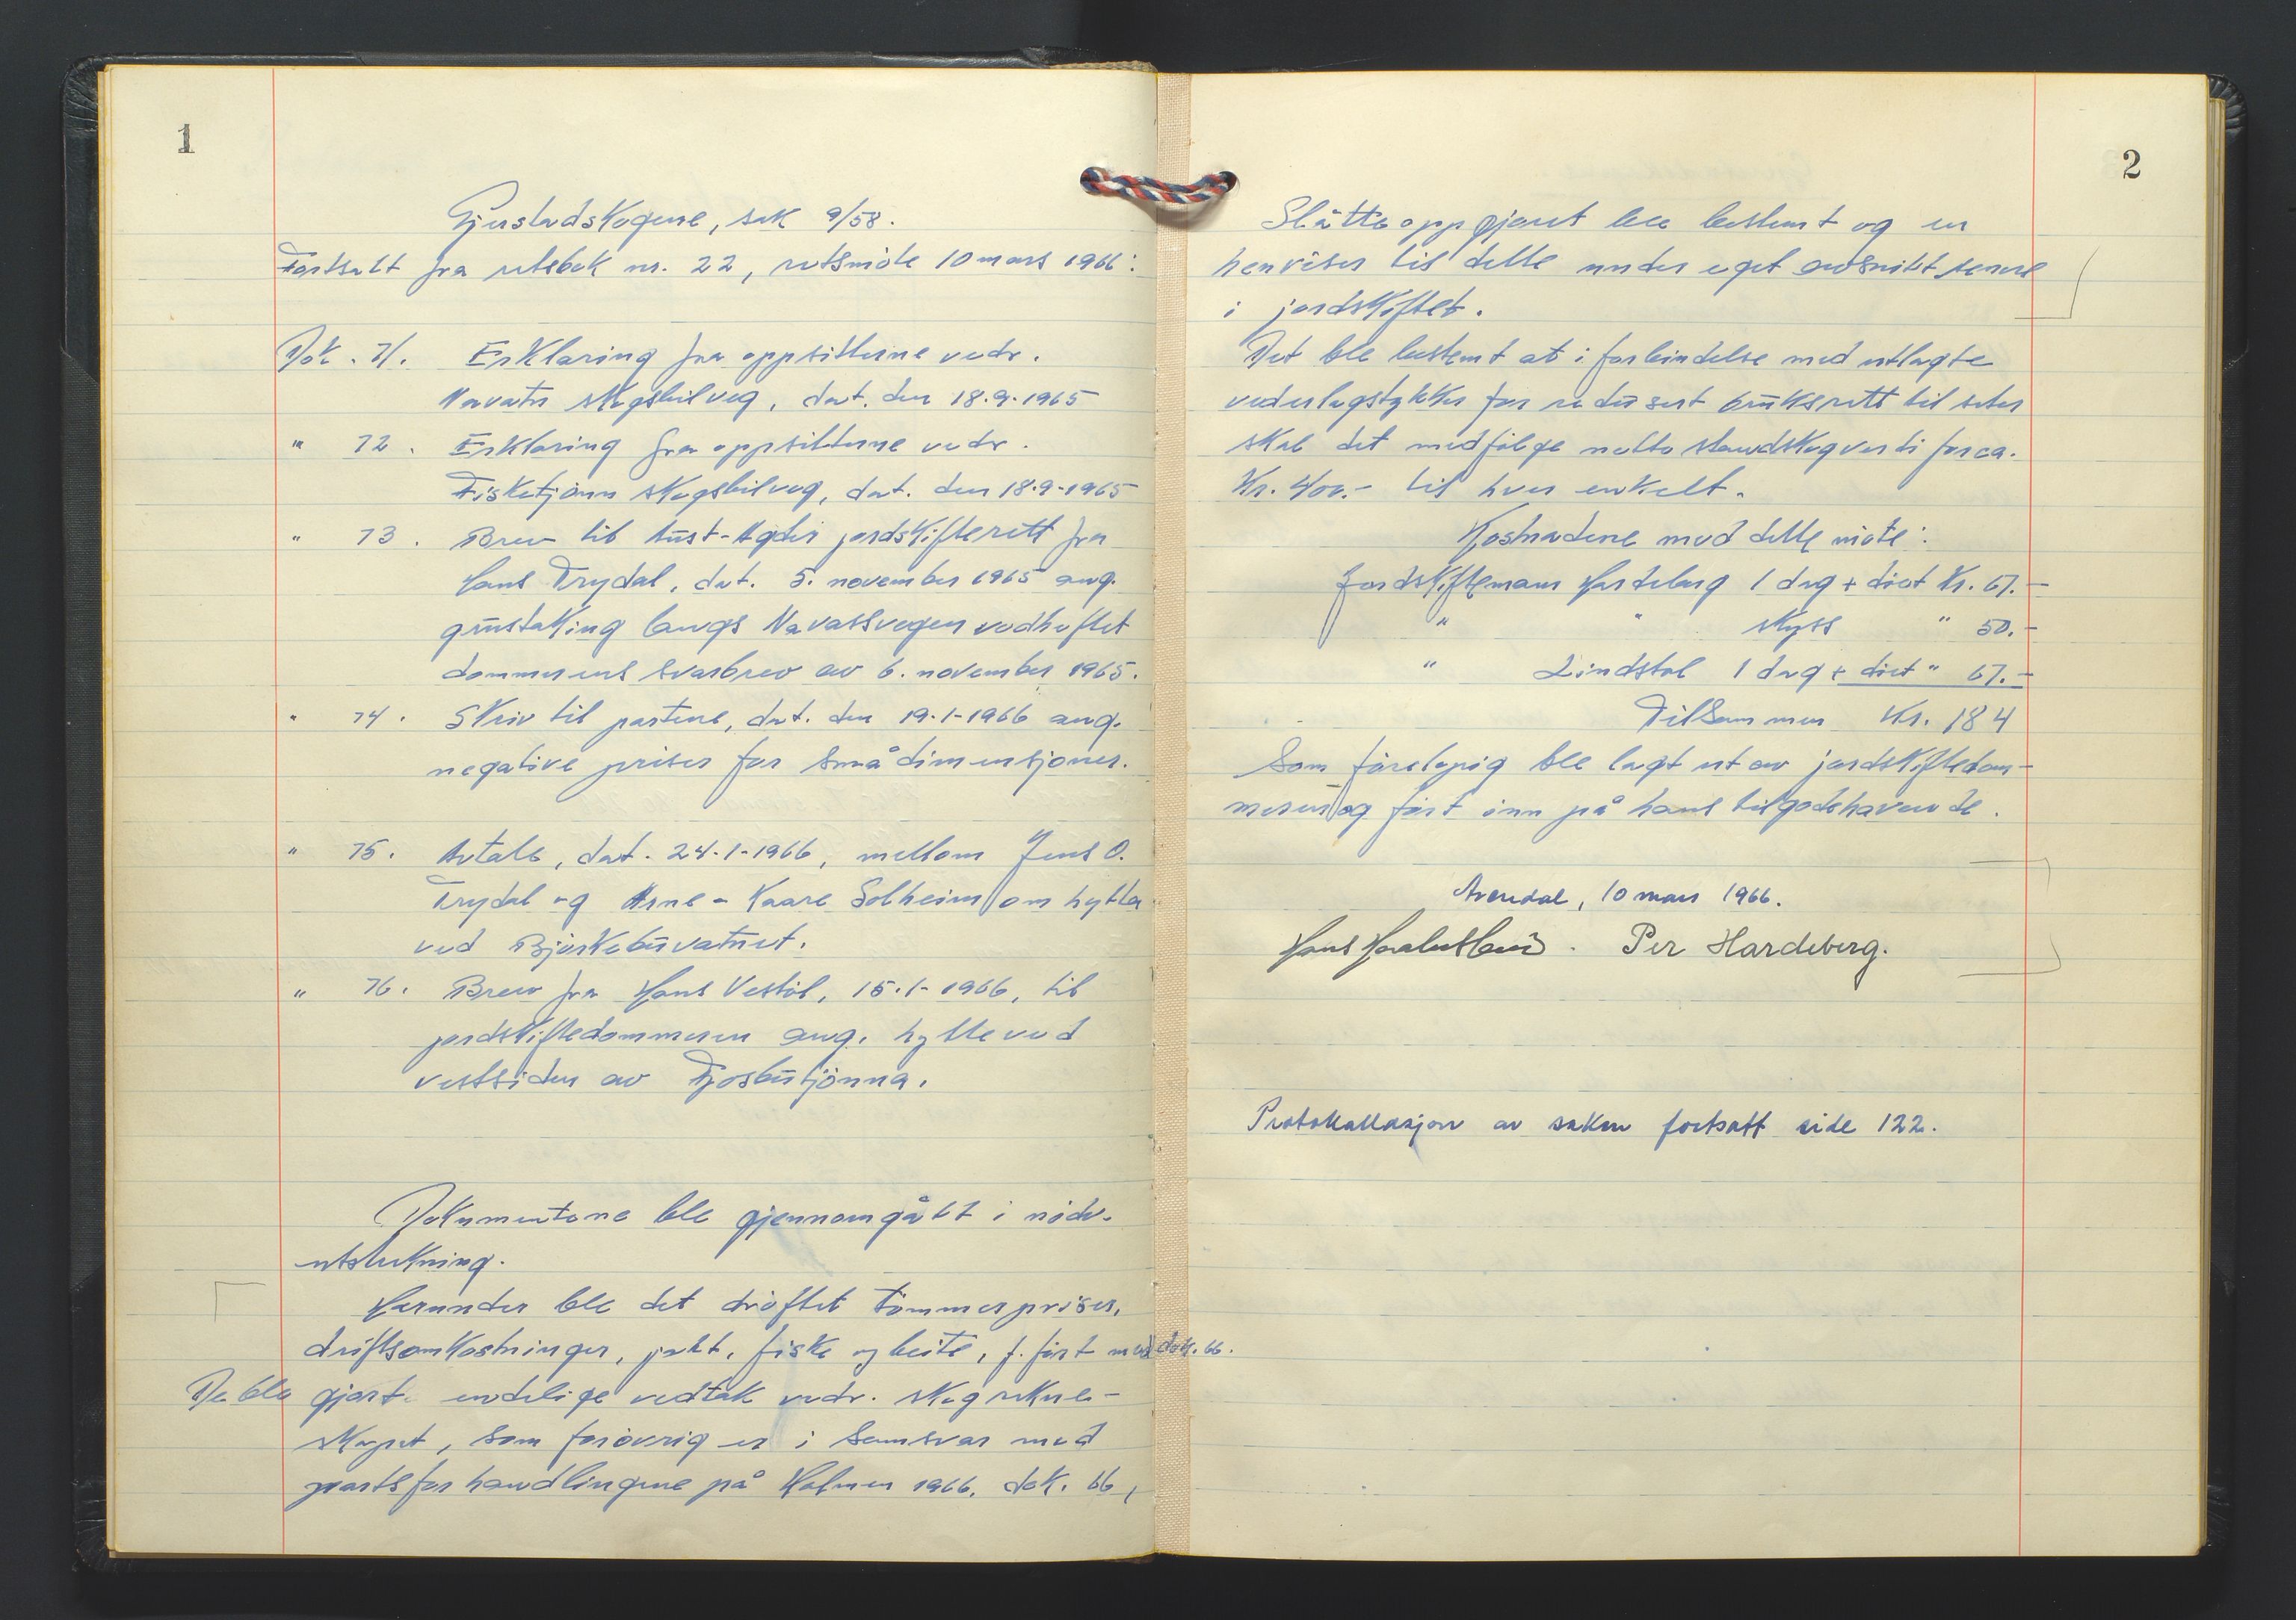 1
Gjerstadskogene, sak 9/58.
Fortsatt fra rettsbok nr. 22, rettsmöte 10 mars 1966:
Dok. 71. Erklæring fra oppsitterne vedr.
Navatn skogsbilveg, dat. den 18.9.1965
" 72. Erklæring fra oppsitterne vedr.
Fisketjönn skogsbilveg, dat. den 18.9-1965
" 73. Brev til Aust-Agder jordskifterett fra
Hans Trydal, dat. 5. november 1965 ang.
grustaking langs Navassvegen vedheftet
dommerens svarbrev av 6. november 1965.
" 74. Skriv til partene, dat. den 19.1-1966 ang.
negative priser for små dimensjoner.
" 75. Avtale, dat. 24.1-1966, mellom Jens O.
Trydal og Arne - Kaare Solheim om hytta
ved Björkebuvatnet.
" 76. Brev fra Hans Vestöl, 15.1-1966, til
jordskiftedommeren ang. hytte ved
vestsiden av Fjosbutjönna.
Dokumentene ble gjennomgått i nödv.
utstrekning.
Herunder ble det dröftet tömmerpriser,
driftsomkostninger, jakt, fiske og beite, j. fört med dok. 66.
De ble gjort endelige vedtak vedr. skogrekne-
skapet, som forövrig er i samsvar med
partsforhandlingene på Holmen 1966, dok. 66,
2
Slåtteoppgjøret ble bestemt og en
henviser til dette under eget avsnitt senere
i jordskiftet.
Det ble bestemt at i forbindelse med utlagte
vederlagstykker for redusert bruksrett til seter
skal det medfölge netto standskogverdi for ca.
Kr. 400.- til hver enkelt.
Kostnadene med dette möte:
Jordskiftemann Hardeberg 1 dag + diet Kr. 67.-
" " skyss " 50.-
" Lindstöl 1 dag + diet " 67.-
Tilsammen Kr. 184
Som förelöpig ble lagt ut av jordskiftedom-
meren og fört inn på hans tilgodehavende.
Arendal, 10 mars 1966.
Hans Per Hardeberg.
Protokollasjon av saken fortsatt side 122.